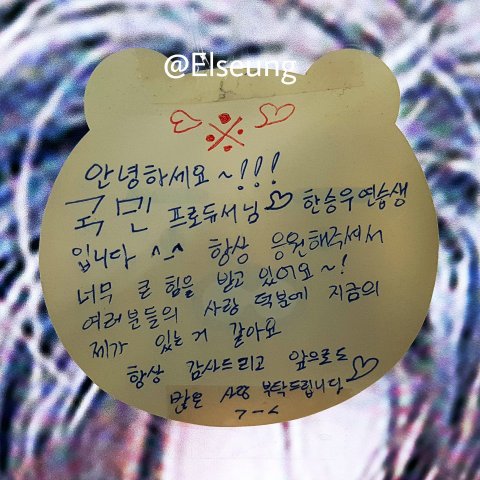 @Elseung
♡ ※ ♡
안녕하세요~!!!
국민 프로듀서님♡ 한승우연습생
입니다 ^_^ 항상 응원해주셔서
너무 큰 힘을 받고 있어요~!
여러분들의 사랑 덕분에 지금의
제가 있는 거 같아요
항상 감사드리고 앞으로도
많은 사랑 부탁드립니다♡